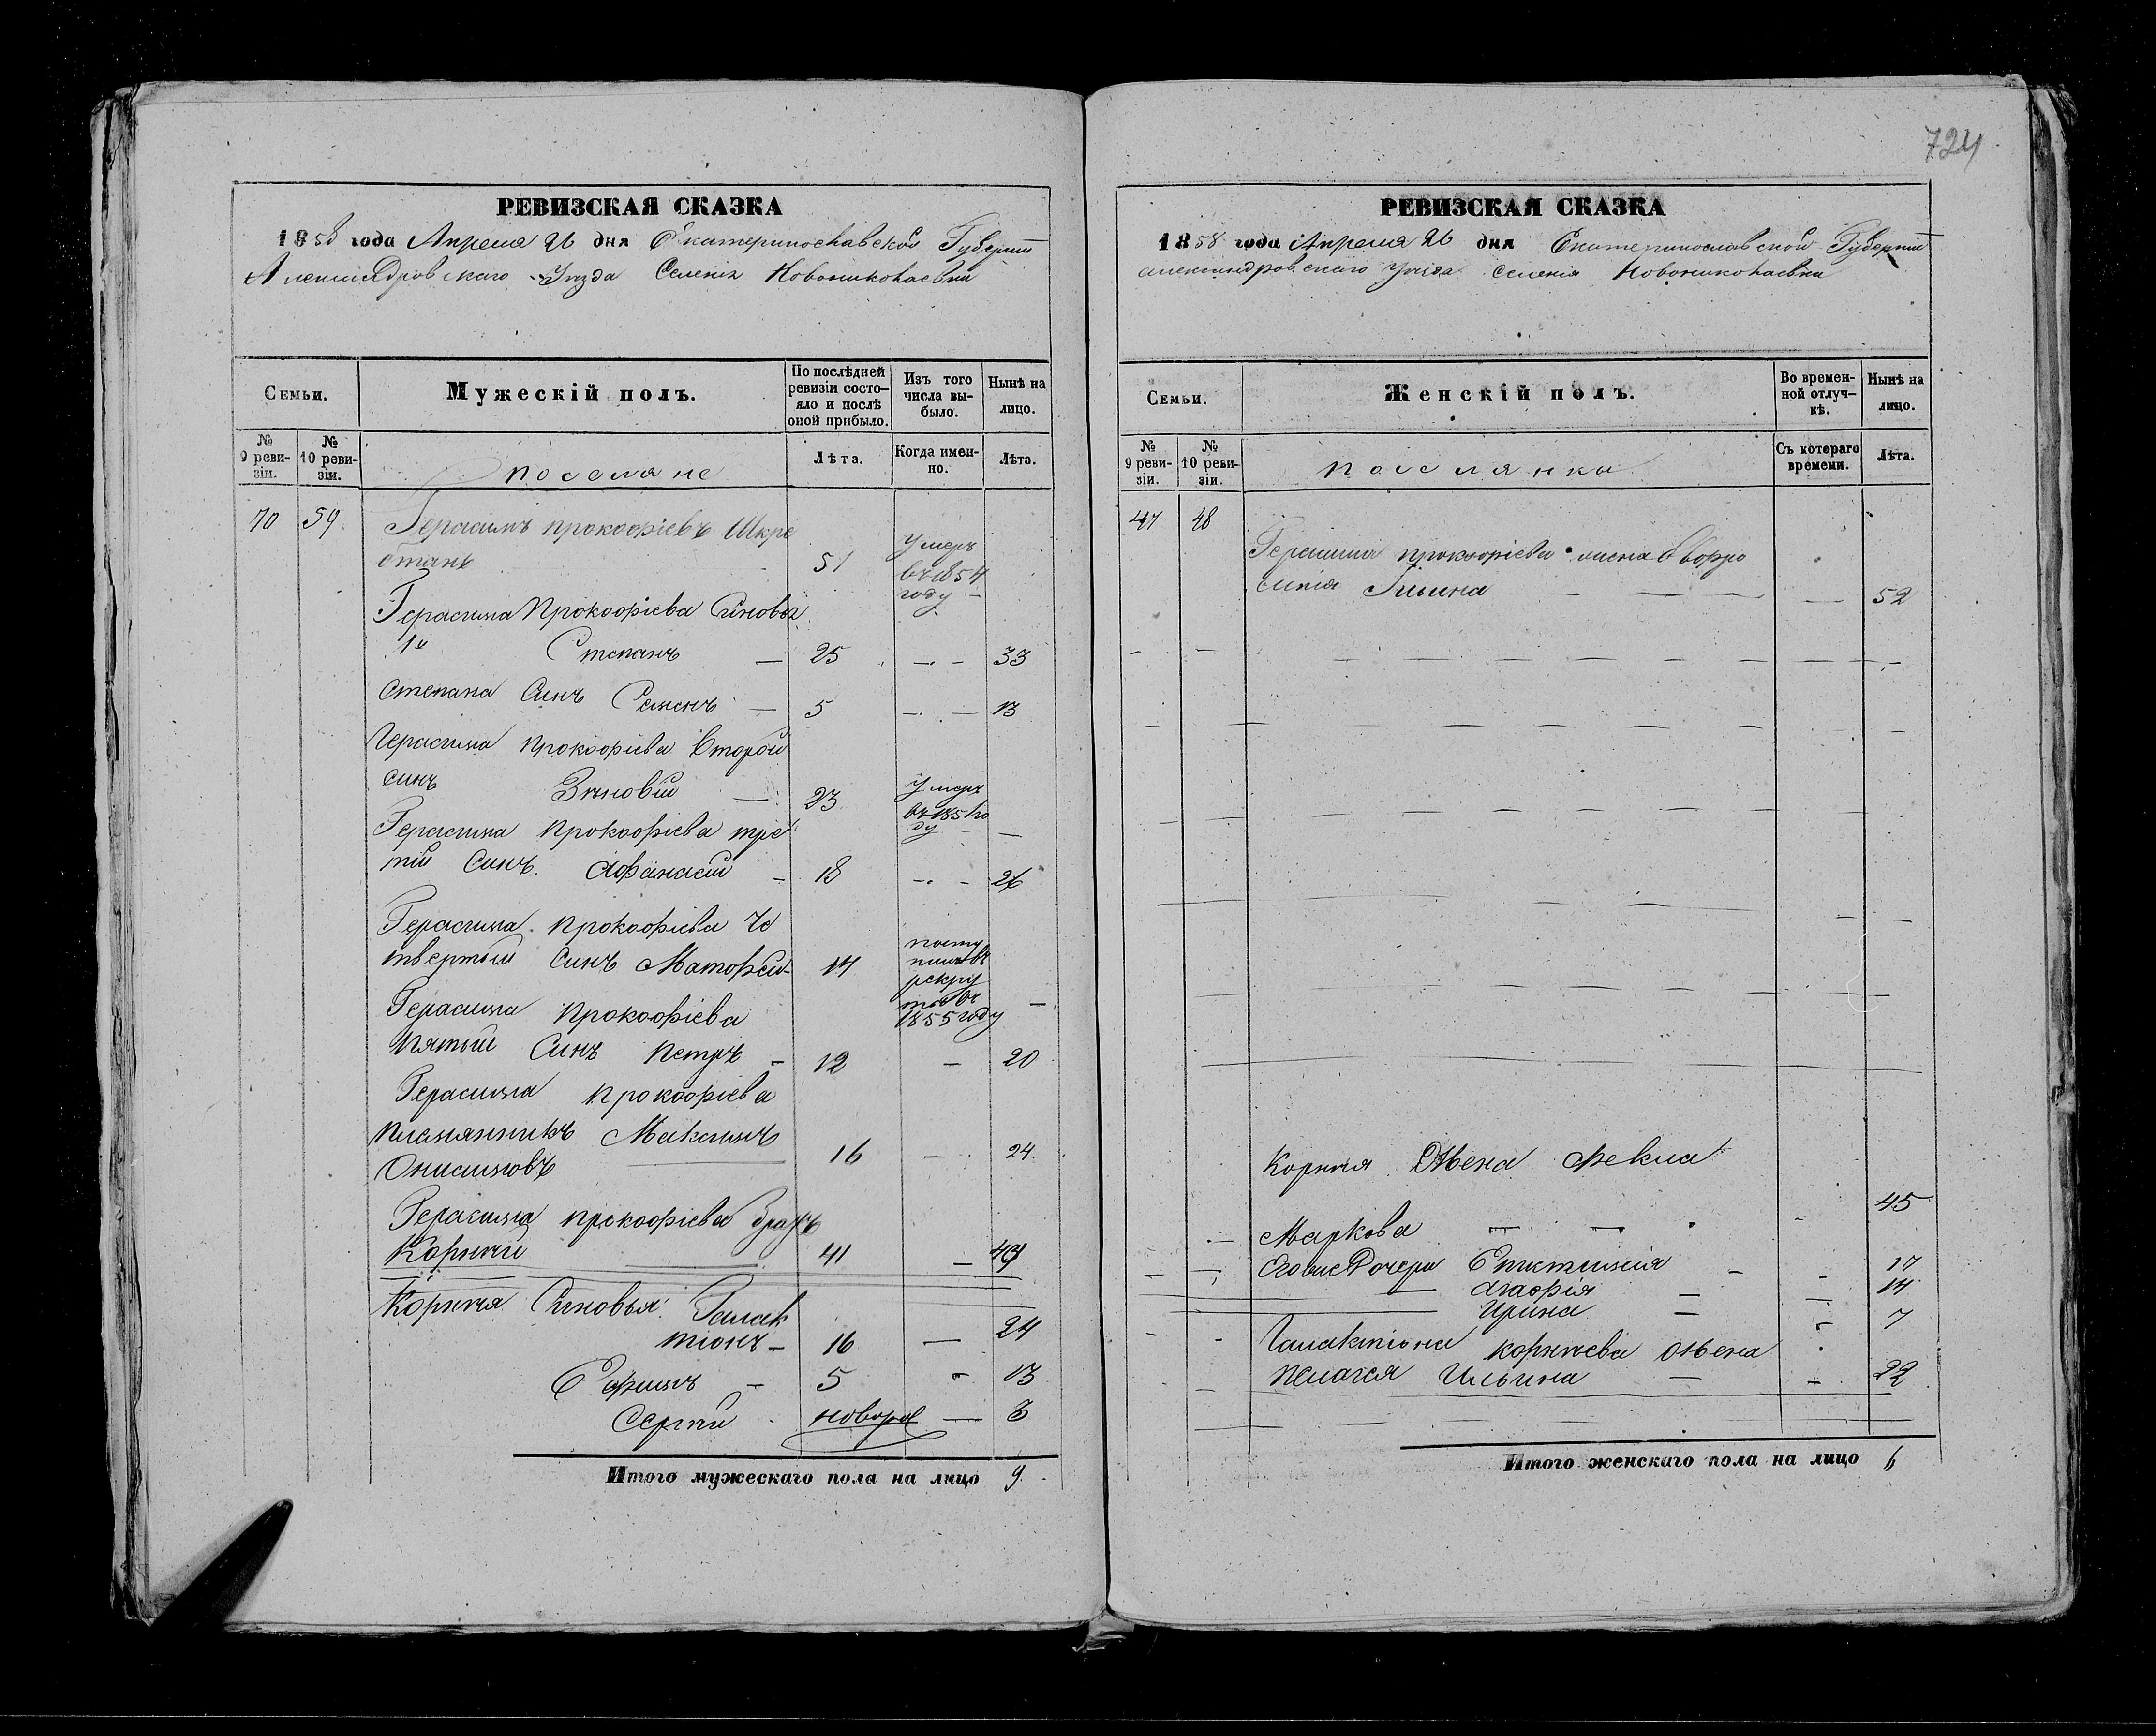 724
РЕВИЗСКАЯ СКАЗКА
1858 года Апреля 26 дня Екатеринославской Губерніи
Александровскаго Уезда Селенія Новониколаевки
Семьи.
Мужескій полъ.
По послѣдней ревизіи состояло и послѣ оной прибыло.
Изъ того числа выбыло.
Нынѣ на лицо.
№ 9 ревизіи.
№ 10 ревизіи.
поселяне
Лѣта.
Когда именно.
Лѣта.
70 59. Герасимъ прокофіевъ Шкре
бтанъ 51 Умеръ въ 1854 году
Герасима Прокофіева Синовья
1й Степанъ — 25 — 33
Степана Синъ Семенъ — 5 — 13
Герасима Прокофіева Второй
синъ Зѣновій — 23 Умеръ въ 185 го ду —
Герасима Прокофіева тре
тій Синъ. Афанасій — 18 — 26
Герасима Прокофіева Че
твертый Синъ Матофей 14 посту пилъ въ рекру ты въ 1855 году —
Герасима Прокофіева
Пятый Синъ Петръ — 12 — 20
Герасима Прокофіева
племянникъ Максимъ
Онисимовъ 16 — 24
Герасима Прокофіева братъ
Корнѣй 41 — 49
Корнѣя Синовья Галак
тіонъ — 16 — 24
Ефимъ — 5 - 13
Сергѣй новорож — 3
Итого мужескаго пола на лицо 9.
РЕВИЗСКАЯ СКАЗКА
1858 года Апреля 26 дня Екатеринославской Губерніи
Александровскаго Уезда Селенія Новониколаевки
Семьи.
Женскій полъ.
Во временной отлучкѣ.
Нынѣ на лицо.
№ 9 ревизіи.
№ 10 ревизіи.
поселянки
Съ котораго времени.
Лѣта.
47 48
Герасима прокофіева жена Евфро
синія — 52
Корнѣя Жена Фекла
Маркова — 45
Егоже Дочери Епистимія — 17
Агафія — 14
Ирина — 7
Галактіона Корнѣева Жена
Пелагея Ильина — 22
Итого женскаго пола на лицо 6